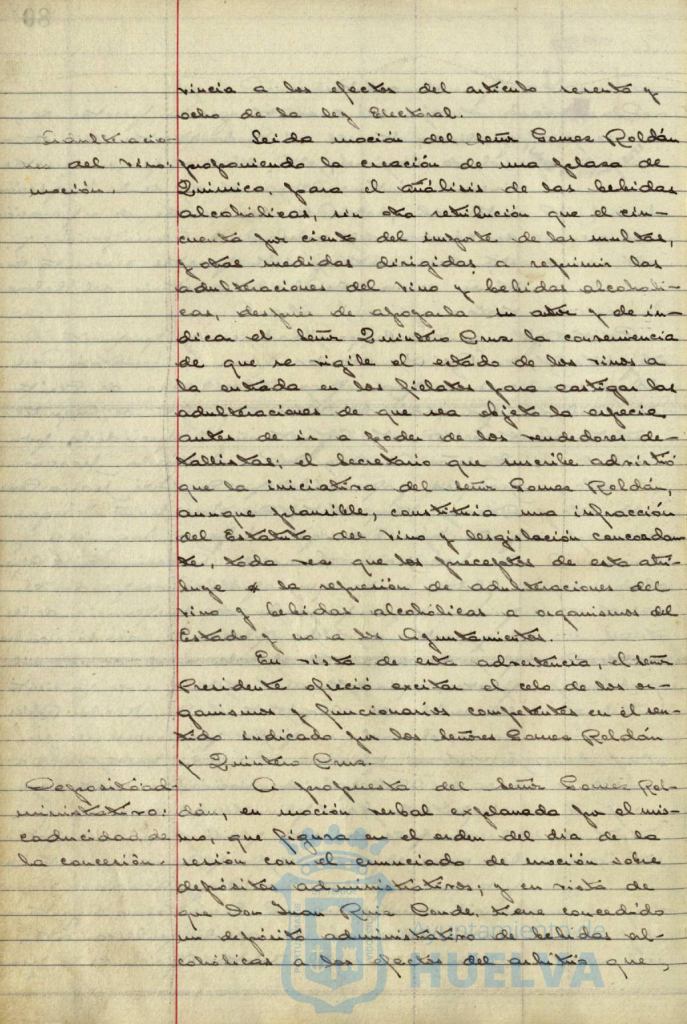 vincia a los efectos del artículo sesenta y
ocho de la ley Electoral.
Adulteracio-
nes del vino:
moción.
Leida moción del señor Gomez Roldán
proponiendo la creación de una plaza de
Quimico, para el análisis de las bebidas
alcohólicas, sin otra retribución que el cin-
cuenta por ciento del importe de las multas,
y otras medidas dirigidas a reprimir las
adulteraciones del vino y bebidas alcoholi-
cas, después de apoyarla su autor y de in-
dicar el señor Quintero Cruz la conveniencia
de que se vigile el estado de los vinos a
la entrada en los fielatos para castigar las
adulteraciones de que sea objeto la especie
antes de ir a poder de los vendedores de-
tallistas; el Secretario que suscribe advirtió
que la iniciativa del señor Gomez Roldán,
aunque plausible, constituia una infracción
del Estatuto del vino y lesgislación concordan-
te, toda vez que los preceptos de esta atri-
buye a la represión de adulteraciones del
vino y bebidas alcohólicas a organismos del
Estado y no a los Ayuntamientos.
En vista de esta advertencia, el señor
Presidente ofreció excitar el celo de los or-
ganismos y funcionarios competentes en el sen-
tido indicado por los señores Gomez Roldán
y Quintero Cruz.
Deposito ad-
ministrativo:
caducidad de
la concesión.
A propuesta del señor Gomez Rol-
dán, en moción verbal explanada por el mis-
mo, que figura en el orden del dia de la
sesión con el enunciado de moción sobre
depósitos administrativos; y en vista de
que Don Juan Ruiz Conde, tiene concedido
un depósito administrativo de bebidas al-
cohólicas a los efectos del arbitrio que,
Ayuntamiento de
HUELVA